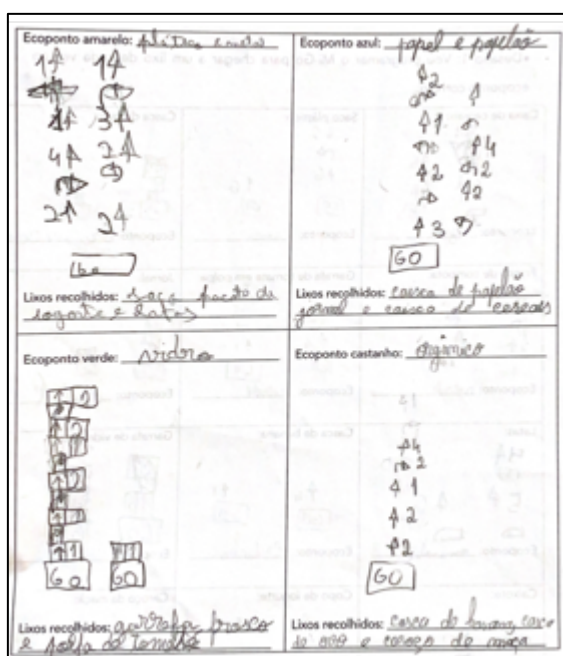 Ecoponto amarelo: plástico e metal
1↑ 1↑
↑ 3↑
4↑ 2↑
2↑ 2↑
Go
Lixos recolhidos: saco pacote de
iogurte e latas
Ecoponto azul: papel e papelão
↑2
↑
↑1
↑4
↑2 2
↑2
↑3
GO
Lixos recolhidos: caixa de papelão
jornal e caixa de cereais
Ecoponto verde: vidro
↑ 2
↑ 2
↑ 2
↑ 1
↑ 1
Go GO
Lixos recolhidos: garrafa frasco
e polpa de Tomate
Ecoponto castanho: orgânico
↑4
2
↑1
↑2
↑2
GO
Lixos recolhidos: casca de banana, casca
de ovo e caroço de maçã